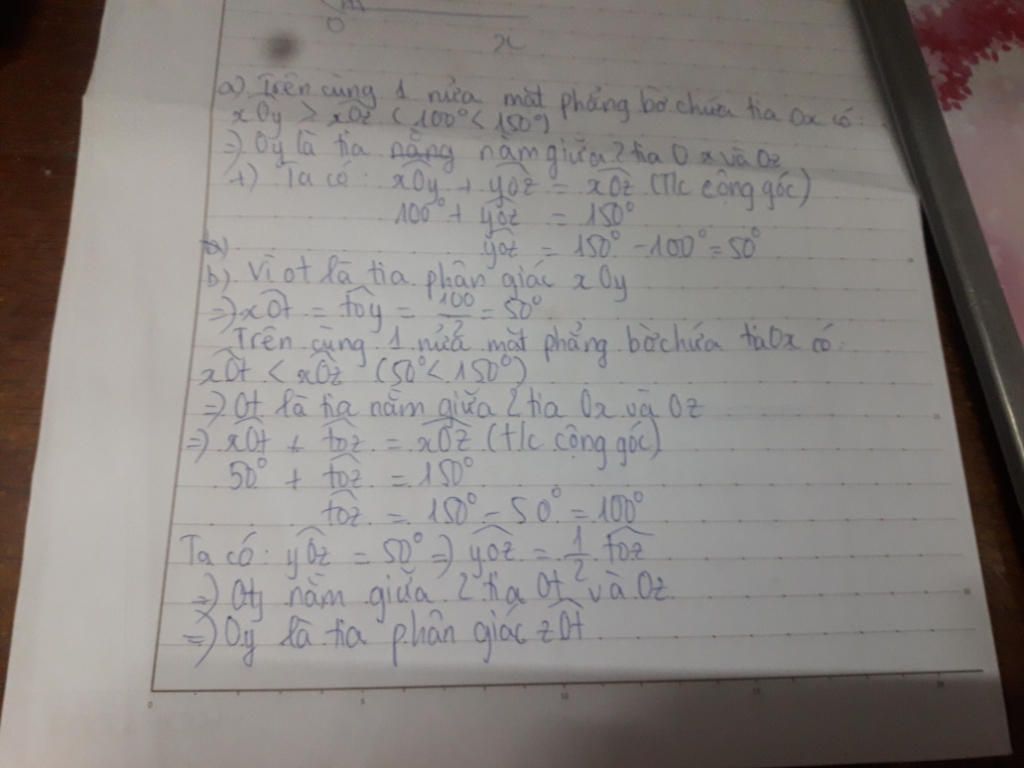 O
x
a) Trên cùng 1 nửa mặt phẳng bờ chứa tia Ox có:
xOy > xOz (100° < 150°)
=) Oy là tia nằng nằm giữa 2 tia Ox và Oz
+) Ta có: xOy + yOz = xOz (T/c cộng góc)
100° + yoz = 150°
yoz = 150° - 100° = 50°
b) Vì ot là tia phân giác xOy
=) xOt = toy = 100/2 = 50°
Trên cùng 1 nửa mặt phẳng bờ chứa tia Ox có:
xOt < xOz (50° < 150°)
=) Ot là tia nằm giữa 2 tia Ox và Oz
=) xOt + toz = xOz (t/c cộng góc)
50° + toz = 150°
toz = 150° - 50° = 100°
Ta có: yOz = 50° =) yoz = 1/2 toz
=) Oy nằm giữa 2 tia Ot và Oz
=) Oy là tia phân giác zOt
0 5 10 15 20